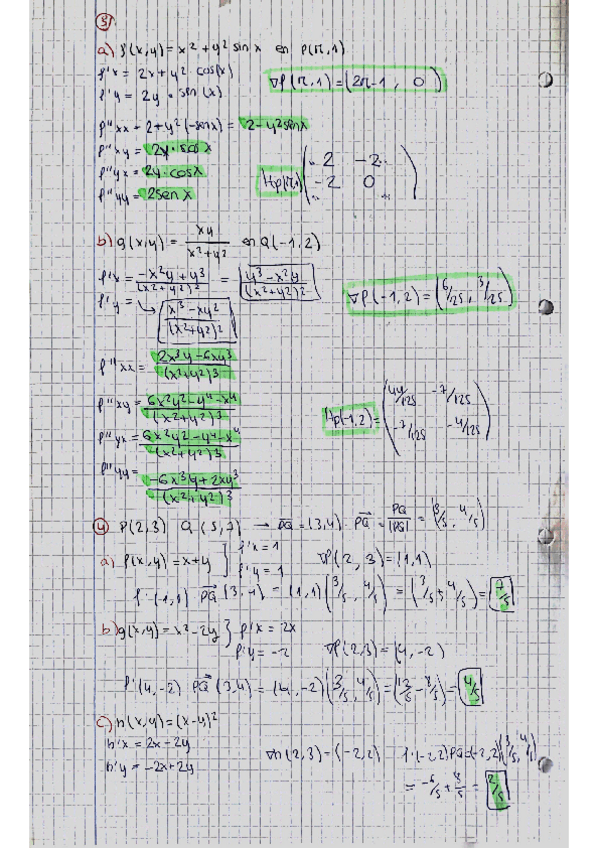 ③
a) f(x,y) = x² + y² sin x en P(π,1)
f'x = 2x + y² cos(x)
f'y = 2y · sen(x)
∇f(π,1) = (2π-1, 0)
f''xx = 2 + y²(-senx) = 2 - y² senx
f''xy = 2y · cosx
f''yx = 2y · cosx
f''yy = 2 sen x
Hf(π,1) ( 2 -2
-2 0 )
b) g(x,y) = xy / x² + y² en Q(-1,2)
f'x = -x²y + y³ / (x² + y²)² = y³ - x²y / (x² + y²)²
f'y = x³ - xy² / (x² + y²)²
∇f(-1,2) = (6/25, 3/25)
f''xx = 2x³y - 6xy³ / (x² + y²)³
f''xy = 6x²y² - y⁴ - x⁴ / (x² + y²)³
f''yx = 6x²y² - y⁴ - x⁴ / (x² + y²)³
f''yy = -6x³y + 2xy³ / (x² + y²)³
Hf(-1,2) = ( 44/125 -7/125
-7/125 -4/125 )
④ P(2,3) Q(5,7) → PQ = (3,4) · PQ = PQ / |PQ| = (3/5, 4/5)
a) f(x,y) = x+y } f'x = 1
f'y = 1
∇f(2,3) = (1,1)
f'(1,1) PQ (3,4) = (1,1) (3/5, 4/5) = (3/5 + 4/5) = 7/5
b) g(x,y) = x² - 2y } f'x = 2x
f'y = -2
∇f(2,3) = (4,-2)
f'(4,-2) PQ (3,4) = (4,-2) (3/5, 4/5) = (12/5 - 8/5) = 4/5
c) h(x,y) = (x-y)²
h'x = 2x - 2y
h'y = -2x + 2y
∇h(2,3) = (-2,2) f'(-2,2) PQ = (-2,2) (3/5, 4/5)
= -6/5 + 8/5 = 2/5